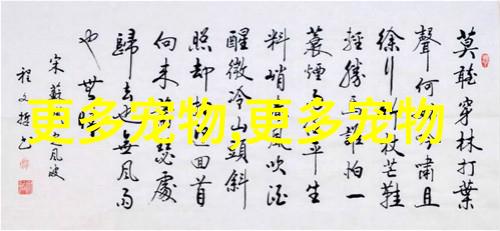 莫聽穿林打葉
聲何嘯且
徐行杖芒鞋
輕勝馬誰怕一
蓑煙平生
料峭風吹酒
醒微冷山頭斜
照却迎回首
向来瑟處
歸去也無風雨
也無
宋蘇風波
程文
更多宠物,更多宠物